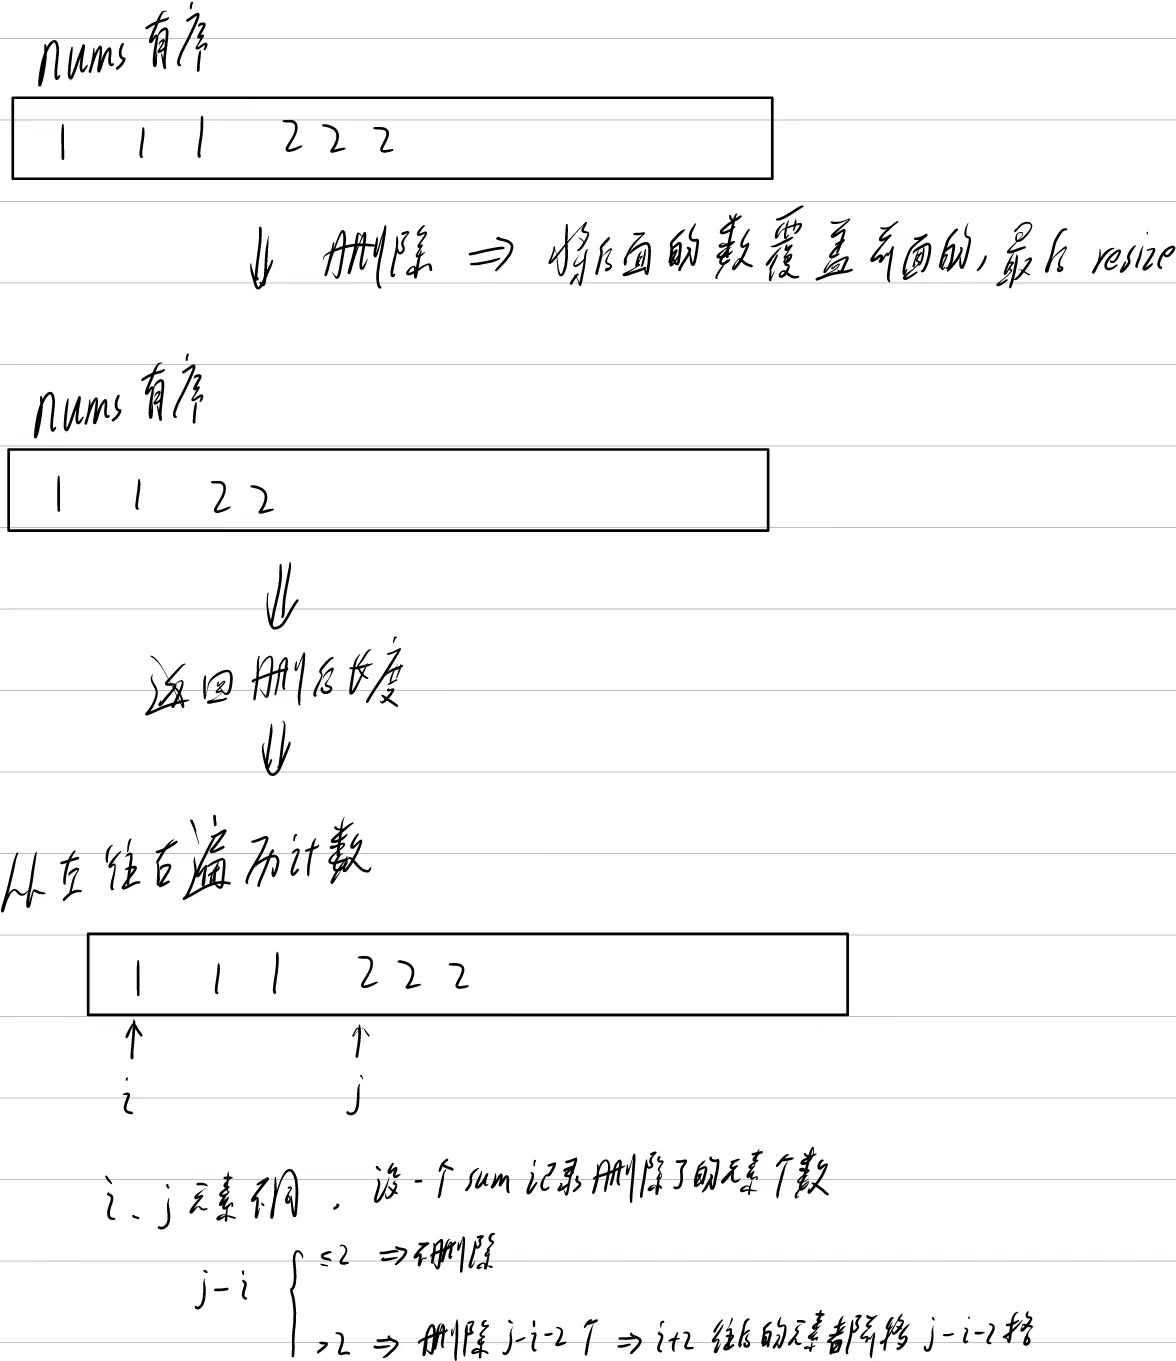 nums 有序
1 1 1 2 2 2
⇓ 删除 ⇒ 将后面的数覆盖前面的, 最后 resize
nums 有序
1 1 2 2
⇓
返回删后长度
⇓
从左往右遍历计数
1 1 1 2 2 2
↑ ↑
i j
i、j 元素不同, 设一个 sum 记录删除了的元素个数
j-i { ≤2 ⇒ 不删除
>2 ⇒ 删除 j-i-2 个 ⇒ i+2 往后的元素都前移 j-i-2 格